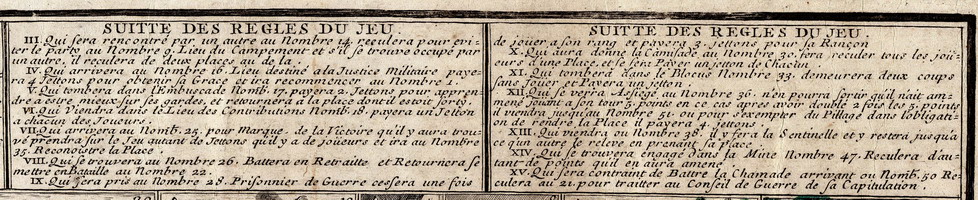 SUITTE DES REGLES DU JEU.
III. Qui sera rencontré par un autre au Nombre 14. reculera pour evi-
ter le parto au Nombre 9. Lieu du Campement et s'il se trouve occupé par
un autre, il reculera de deux places au de la.
IV. Qui arrivera au Nomb. 16. Lieu destiné a la Justice Militaire paye-
ra 4. Jettons pour obtenir sa Grace et ira recommencer au Nombre 1.
V. Qui tombera dans l'Embuscade Nomb. 17. payera 2. Jettons pour appren-
dre a estre mieux sur ses gardes, et retournera a la place dont il estoit sorty.
VI. Qui viendra dans le Lieu des Contributions Nomb. 18. payera un Jetton
a chacun des Joueurs.
VII. Qui arrivera au Nomb. 25. pour Marque de la Victoire qu'il y aura trou-
vé prendra sur le Jeu autant de Jettons qu'il y a de joueurs et ira au Nombre
35. Reconoistre la Place.
VIII. Qui se trouvera au Nombre 26. Battera en Retraitte et Retournera se
mettre en Bataille au Nombre 22.
IX. Qui sera pris au Nombre 28. Prisonnier de Guerre cessera une fois
SUITTE DES REGLES DU JEU.
de jouer a son rang et payera 3. jettons pour sa Rançon
X. Qui aura donné la Camisade au Nombre 30. fera reculer tous les joü-
eurs d'une Place, et se fera Payer un jetton de Chacun.
XI. Qui tombera dans le Blocus Nombre 33. demeurera deux coups
sans joüer et Payera un jetton.
XII. Qui se verra Assiegé au Nombre 36. n'en pourra sortir qu'il n'ait am-
mené jouant a son tour 5. points en ce cas apres avoir doublé 2 fois les 5. points
il viendra jusqu'au Nombre 51. ou pour s'exempter du Pillage dans l'obligati-
on de rendre la Place il payera 4. jettons.
XIII. Qui viendra au Nombre 38. il y fera la Sentinelle et y restera jusqu'a
ce qu'un autre le releve en prenant sa place
XIV. Qui se trouvera engagé dans la Mine Nombre 47. Reculera d'au-
tant de points qu'il en aura amené.
XV. Qui sera contraint de Battre la Chamade arrivant au Nomb. 50 Re-
culera au 21. pour traitter au Conseil de Guerre de sa Capitulation.